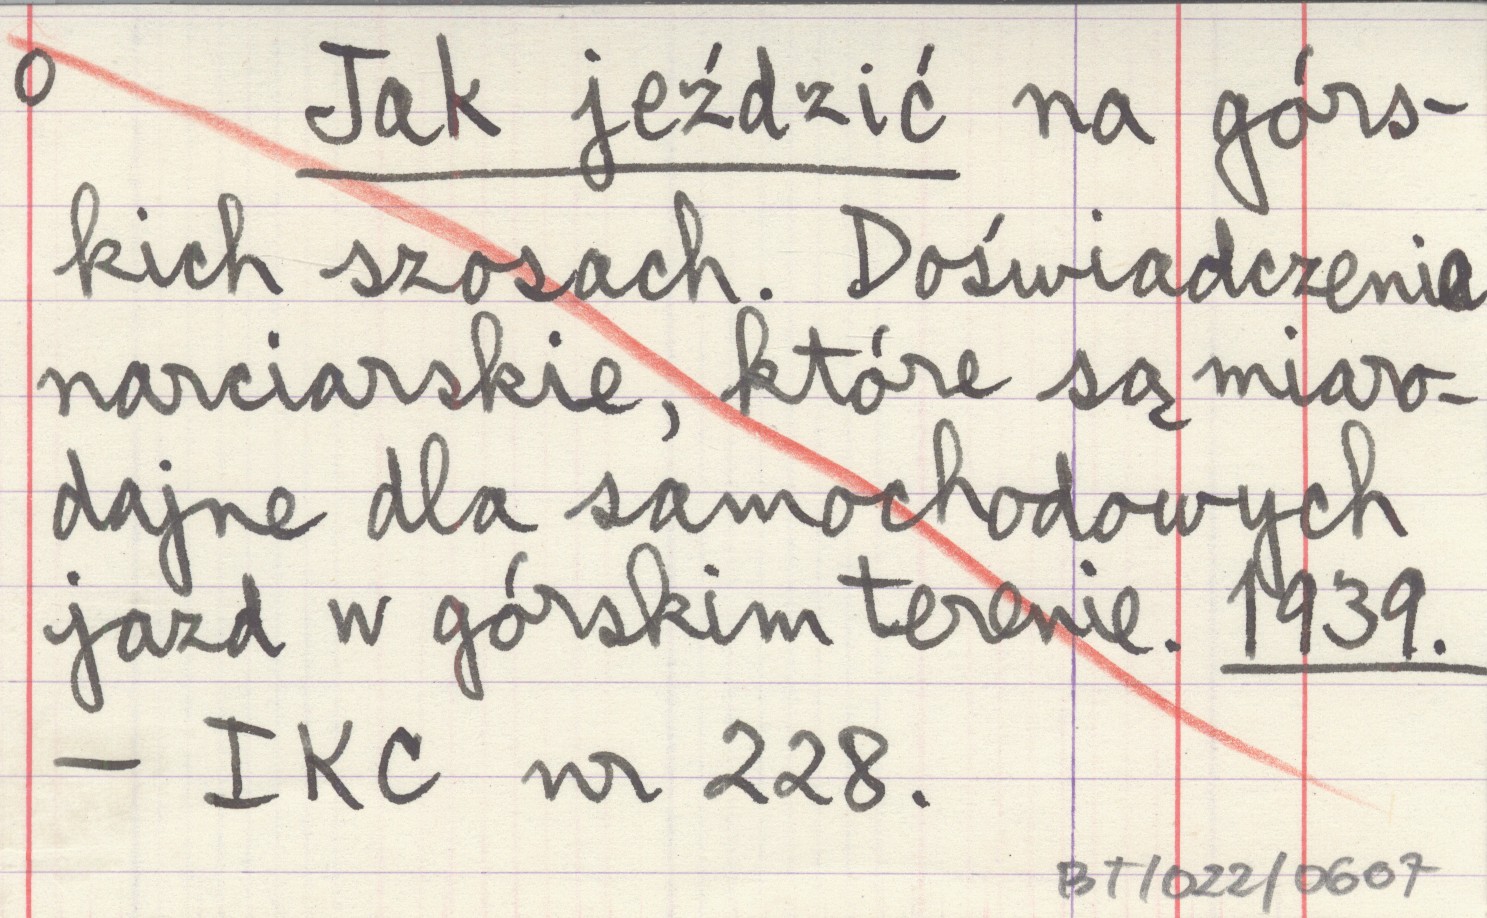 o Jak jeździć na górs-
kich szosach. Doświadczenia
narciarskie, które są miaro-
dajne dla samochodowych
jazd w górskim terenie. 1939.
— IKC nr 228.
BT/022/0607